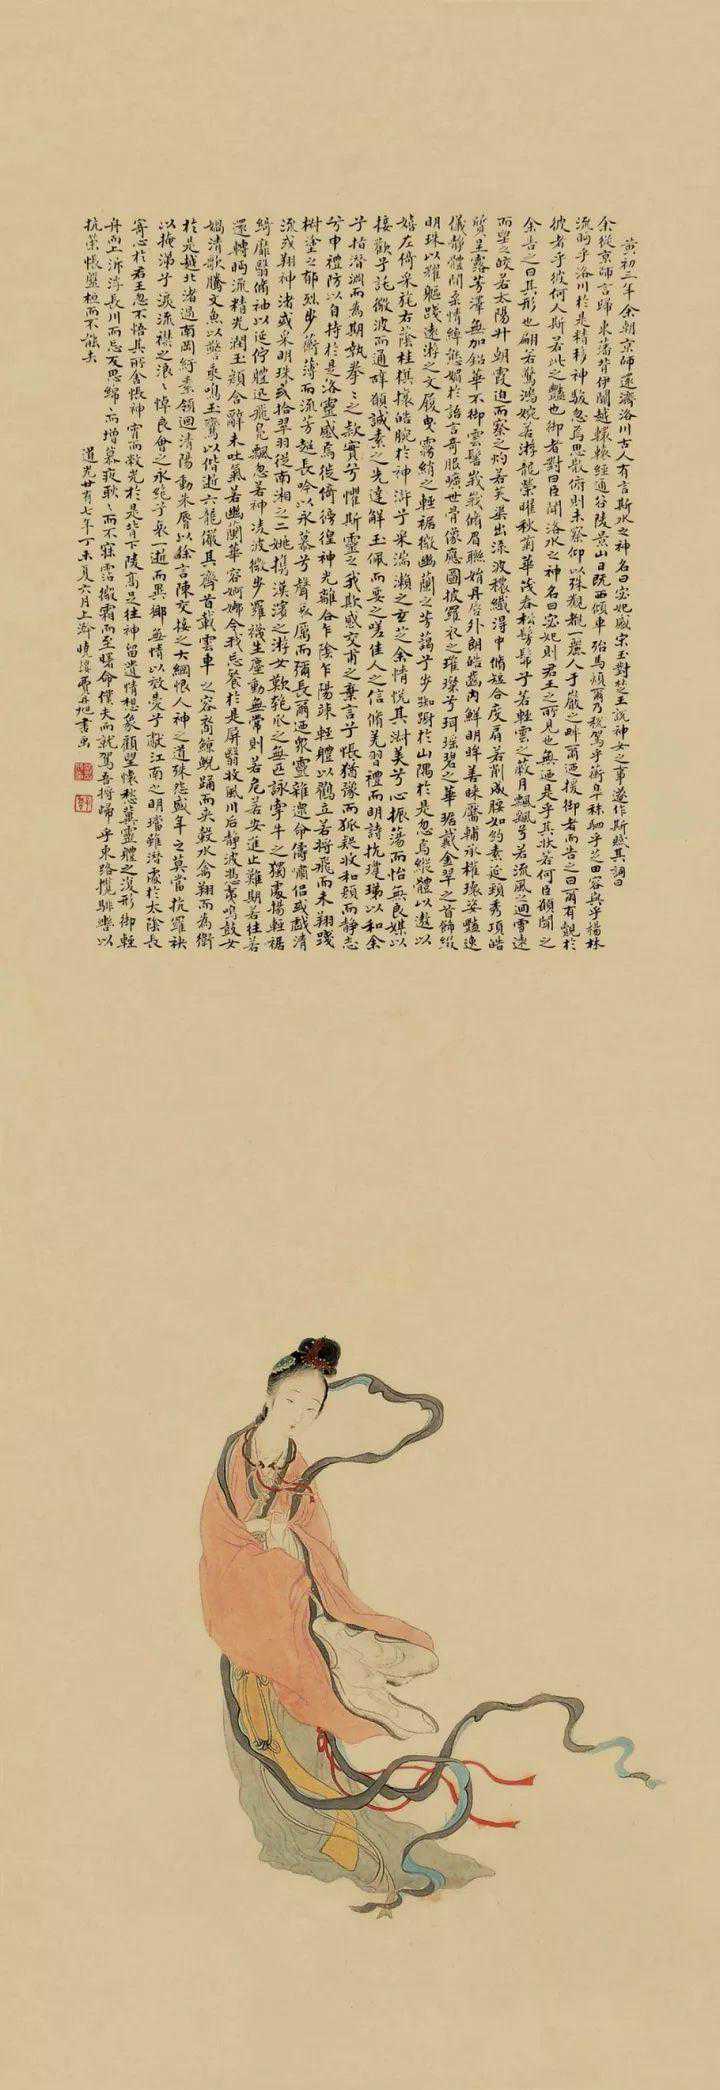 黃初三年余朝京師還濟洛川古人有言斯水之神名曰宓妃感宋玉對楚王說神女之事遂作斯賦其詞曰
余從京師言歸東藩背伊闕越轘轅經通谷陵景山日既西傾車殆馬煩爾乃稅駕乎蘅皋秣駟乎芝田容與乎楊林
流眄乎洛川於是精移神駭忽焉思散俯則未察仰以殊觀覩一麗人于巖之畔爾迺援御者而告之曰爾有覿於
彼者乎彼何人斯若此之豔也御者對曰臣聞洛水之神名曰宓妃則君王之所見也無迺是乎其狀若何臣願聞之
余告之曰其形也翩若驚鴻婉若游龍榮曜秋菊華茂春松髣髴兮若輕雲之蔽月飄颻兮若流風之迴雪遠
而望之皎若太陽升朝霞迫而察之灼若芙蕖出淥波穠纖得中脩短合度肩若削成腰如約素延頸秀項皓
質呈露芳澤無加鉛華不御雲髻峩峩脩眉聯娟丹脣外朗皓齒內鮮明眸善睞靨輔承權瓌姿豔逸
儀靜體閒柔情綽態媚於語言奇服曠世骨像應圖披羅衣之璀璨兮珥瑤碧之華琚戴金翠之首飾綴
明珠以耀軀踐遠游之文履曳霧綃之輕裾微幽蘭之芳藹兮步踟躕於山隅於是忽焉縱體以遨以
嬉左倚采旄右蔭桂旗攘皓腕於神滸兮采湍瀨之玄芝余情悅其淑美兮心振蕩而怡無良媒以
接歡兮託微波而通辭願誠素之先達解玉佩而要之嗟佳人之信脩羌習禮而明詩抗瓊珶以和余
兮指潛淵而為期執拳〻之款實兮懼斯靈之我欺感交甫之棄言兮悵猶豫而狐疑收和顏而靜志
兮申禮防以自持於是洛靈感焉徙倚徬徨神光離合乍陰乍陽竦輕體以鶴立若將飛而未翔踐
椒塗之郁烈步蘅薄而流芳超長吟以永慕兮聲哀厲而彌長爾迺眾靈雜遝命儔嘯侶或戲清
流或翔神渚或采明珠或拾翠羽從南湘之二姚攜漢濱之游女歎匏瓜之無匹詠牽牛之獨處揚輕裾
綺靡翳脩袖以延佇體迅飛鳧飄忽若神凌波微步羅襪生塵動無常則若危若安進止難期若往若
還轉眄流精光潤玉顏含辭未吐氣若幽蘭華容婀娜令我忘餐於是屏翳收風川后靜波馮夷鳴鼓女
媧清歌騰文魚以警乘鳴玉鸞以偕逝六龍儼其齊首載雲車之容裔鯨鯢踊而夾轂水禽翔而為衛
於是越北渚過南岡紆素領迴清陽動朱脣以徐言陳交接之大綱恨人神之道殊怨盛年之莫當抗羅袂
以掩涕兮淚流襟之浪〻悼良會之永絕兮哀一逝而異鄉無情以效愛兮獻江南之明璫雖潛處於太陰長
寄心於君王忽不悟其所舍悵神宵而蔽光於是背下陵高足往神留遺情想象顧望懷愁冀靈體之復形御輕
舟而上泝浮長川而忘反思綿〻而增慕夜耿〻而不寐霑微霜而至曙命僕夫而就駕吾將歸乎東路攬騑轡以
抗策悵盤桓而不能去
道光廿有七年丁未夏六月上澣曉樓費丹旭書画